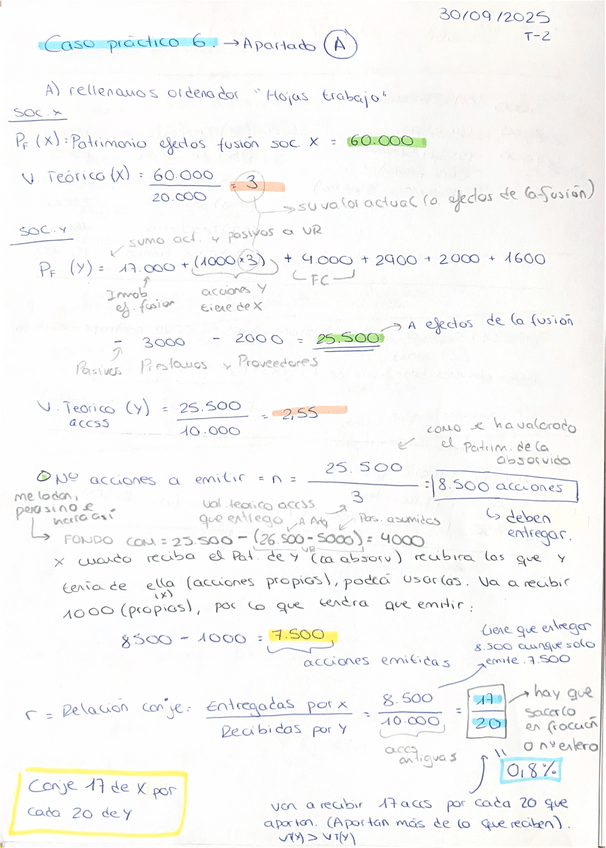 30/09/2025
T-2
Caso práctico 6. → Apartado (A)
A) rellenamos ordenador "Hojas trabajo"
SOC. X
PF (X): Patrimonio efectos fusión soc X = 60.000
V Teórico (X) = 60.000 / 20.000 = 3
→ su valor actual (a efectos de la fusión)
SOC. Y
suma act. y pasivos a VR
PF (Y) = 17.000 + (1000·3) + 4000 + 2900 + 2000 + 1600
Inmob ef. fusion
acciones Y tiene de X
FC
- 3000 - 2000 = 25.500 → A efectos de la fusión
Pasivos Prestamos y Proveedores
V. Teorico (Y) = 25.500 / 10.000 = 2,55
accs
como se ha valorado el Patrim. de la absorvida
Nº acciones a emitir = n = 25.500 / 3 = 8.500 acciones
↳ deben entregar.
me lo dan, pero si no se haría así
val. teorico accs que entrego
A Adq
Pas. asumidos
→ FONDO COM = 25500 - (26.500 - 5000) = 4000
VR
X cuando reciba el Pat. de Y (la absorv) recibira las que Y
tenía de ella (acciones propias), podrá usarlas. Va a recibir
(X)
1000 (propias), por lo que tendra que emitir:
8500 - 1000 = 7.500
acciones emitidas
tiene que entregar 8.500 aunque solo emite 7.500
r = Relación canje: Entregadas por X / Recibidas por Y = 8.500 / 10.000 = 17 / 20
accs antiguas
→ hay que sacarlo en fracción o nº entero
"
0,8%
Canje 17 de X por
cada 20 de Y
van a recibir 17 accs por cada 20 que
aportan. (Aportan más de lo que reciben).